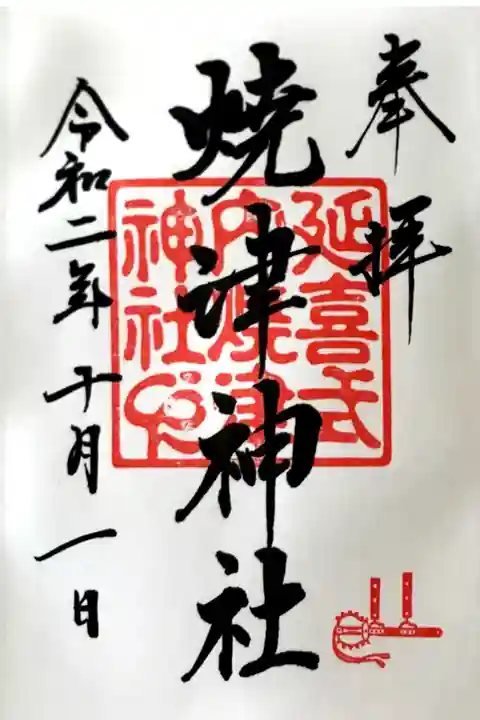 奉拝
燒津神社
延喜式
内焼津
神社之印
令和二年十月一日